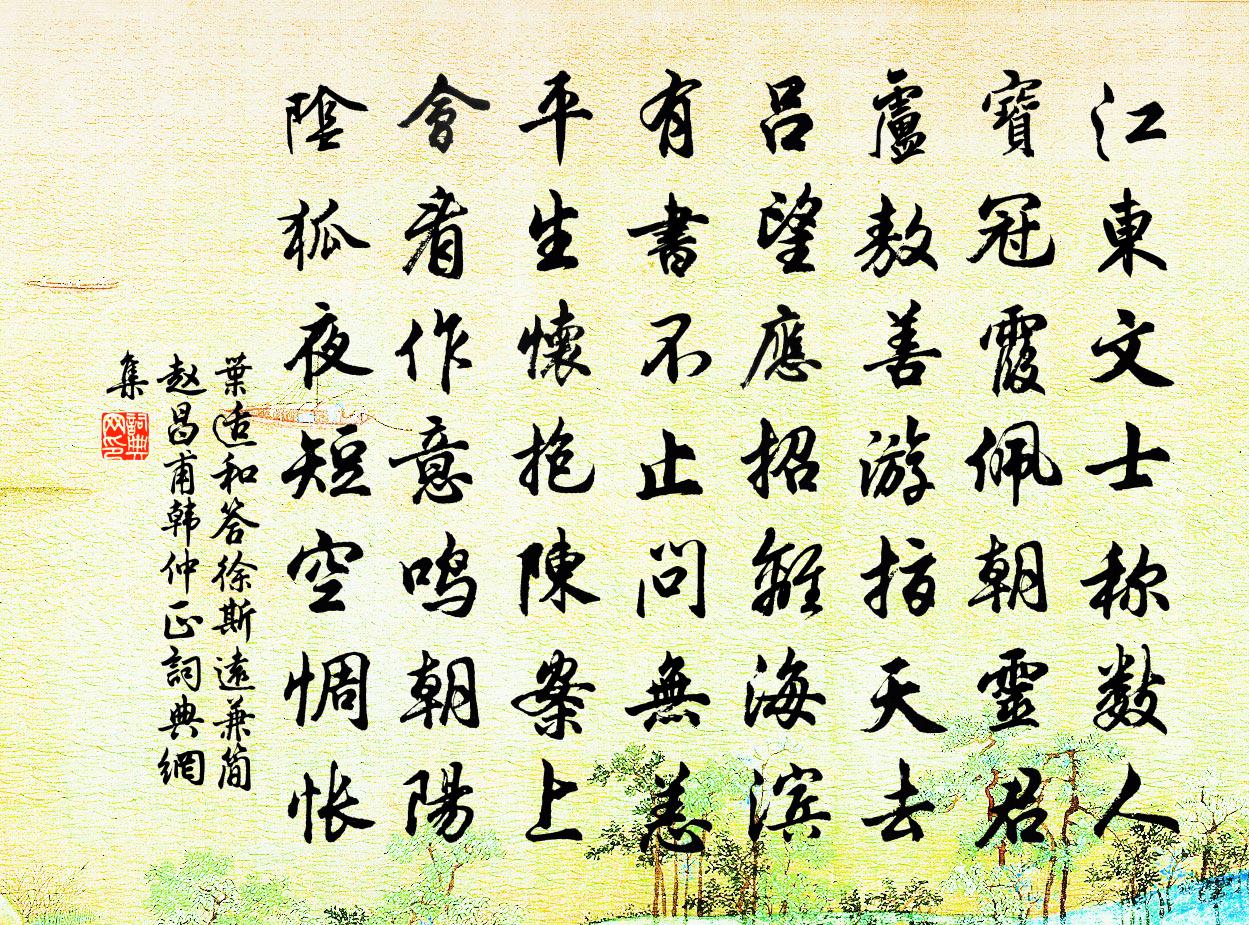 江東文士称數人
寶冠霞佩朝靈君
盧敖善游指天去
呂望應招離海滨
有書不止問無恙
平生懷抱陳案上
會看作意鳴朝陽
陰狐夜短空惆怅
葉适和答徐斯遠兼简
赵昌甫韩仲正詞典網
集
詞典
网印